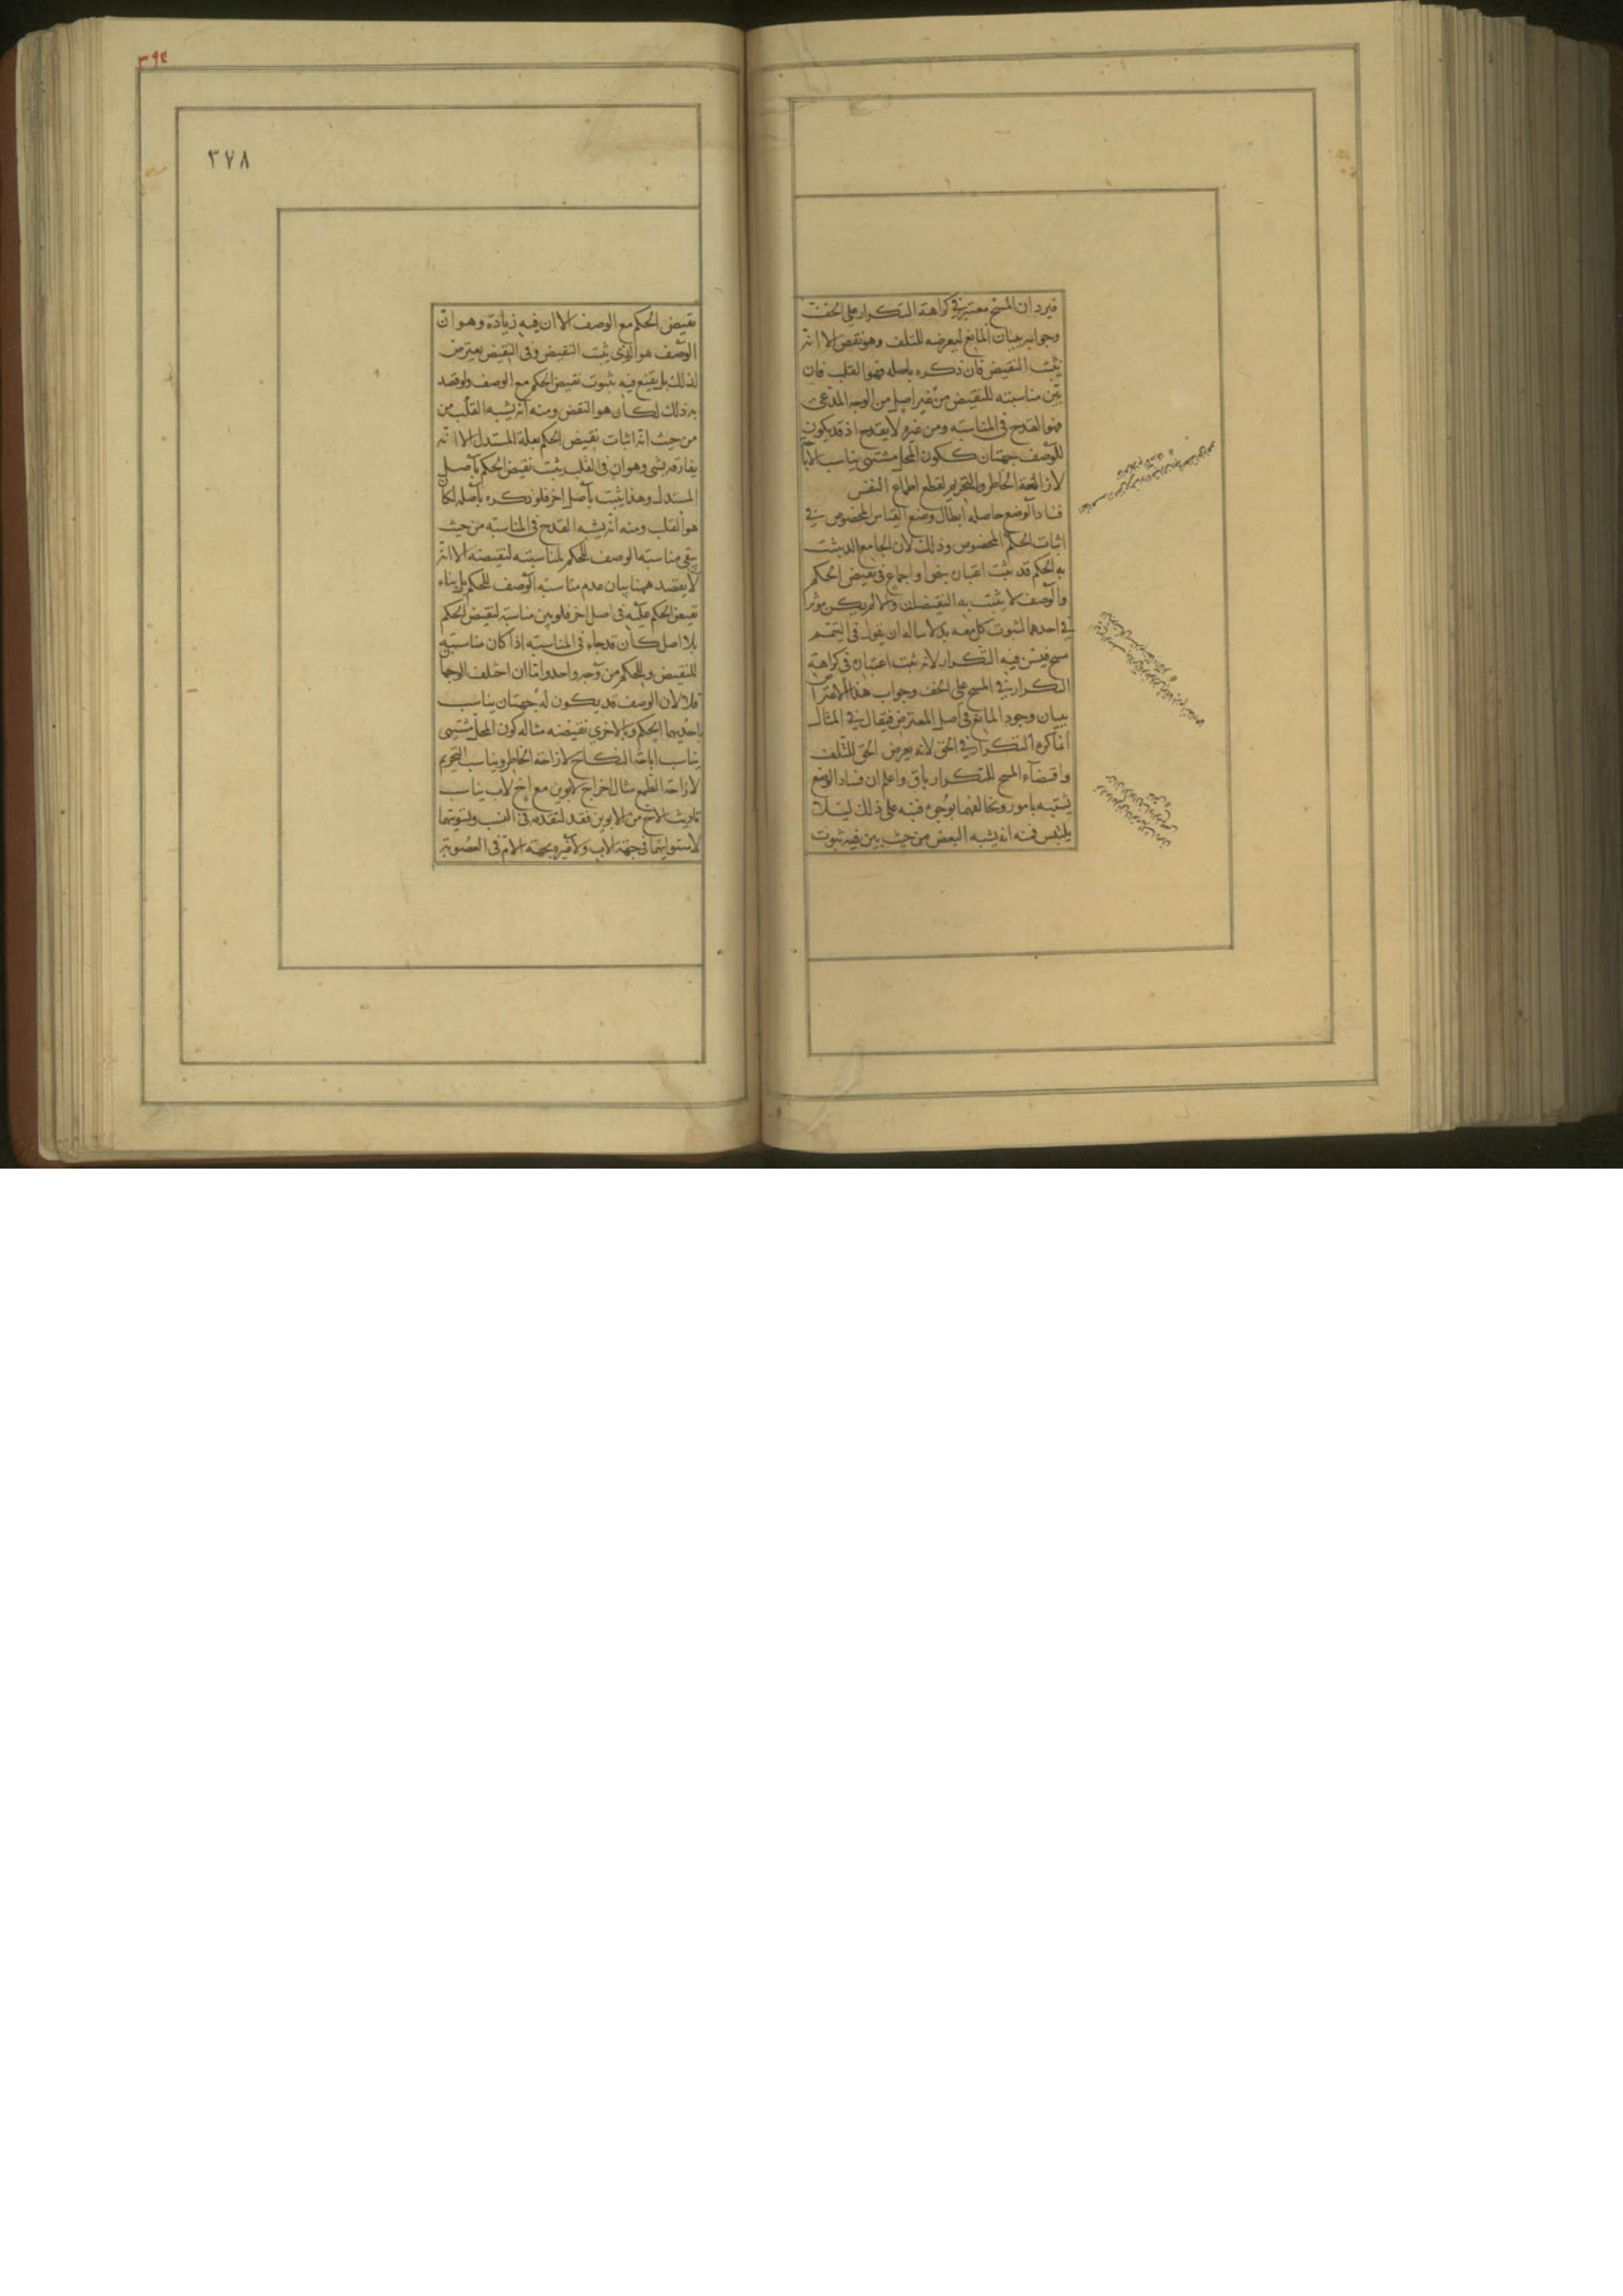 فيرد ان المسح معتبر في كراهة التكرار على الخف
وجوابه ببيان المانع لتعرضه للتلف وهو نقض الا انه
يثبت النقيض فان ذكره باصله فهو القلب فان
بين مناسبته للنقيض من غير اصل من الوجه المدعى
فهو القدح في المناسبة ومن غيره لا يقدح اذ قد يكون
للوصف جهتان ككون المحل مشتهى يناسب الاباحة
لازاحة الخاطر والتحريم لقطع اطماع النفس
فساد الوضع حاصله ابطال وضع القياس المخصوص في
اثبات الحكم المخصوص وذلك لان الجامع الذي يثبت
به الحكم قد ثبت اعتباره بنص او اجماع في نقيض الحكم
والوصف لا يثبت به النقيضان والا لم يكن مؤثرا
في احدهما لثبوت كل معه بدلا مثاله ان يقول في التيمم
مسح فيسن فيه التكرار لانه ثبت اعتباره في كراهة
التكرار في المسح على الخف وجواب هذا الاعتراض
ببيان وجود المانع في اصل المعترض فيقال في المثال
انما كره التكرار في الخف لانه يعرض الخف للتلف
واقتضاء المسح للتكرار باق واعلم ان فساد الوضع
يشتبه بامور ويخالفها بوجوه فنبه على ذلك لئلا
يلتبس فمنه انه يشبه النقض من حيث بين فيه ثبوت
٣٩٤
٣٧٨
نقيض الحكم مع الوصف الا ان فيه زيادة وهو ان
الوصف هو الذي يثبت النقيض وفي النقيض يعترض
لذلك بل يقنع فيه بثبوت نقيض الحكم مع الوصف ولو قصد
به ذلك لكان هو النقض ومنه انه يشبه القلب من
من حيث انه اثبات نقيض الحكم بعلة المستدل الا انه
يفارقه بشي وهو ان في القلب يثبت نقيض الحكم باصل
المستدل وهذا يثبت باصل اخر فلو ذكره باصله لكان
هو القلب ومنه انه يشبه القدح في المناسبة من حيث
ينفي مناسبة الوصف للحكم لمناسبته لنقيضه الا انه
لا يقصد ههنا بيان عدم مناسبة الوصف للحكم بل بناء
نقيض الحكم عليه في اصل اخر فلو بين مناسبته لنقيض الحكم
بلا اصل كان قدحا في المناسبة اذا كان مناسبته
للنقيض وللحكم من وجه واحد واما ان اختلف الوجها
فلا لان الوصف قد يكون له جهتان يناسب
باحديهما الحكم وبالاخرى نقيضه مثاله كون المحل مشتهى
يناسب اباحة النكاح لازاحة الخاطر ويناسب التحريم
لازاحة الطمع مثال اخر اخ لابوين مع اخ لاب يناسب
توريث الاخ من الابوين فقط لتقدمه في النسب وتسويتهما
لاستوائهما في جهة الاب ولا عبرة بجهة الام في العصوبة